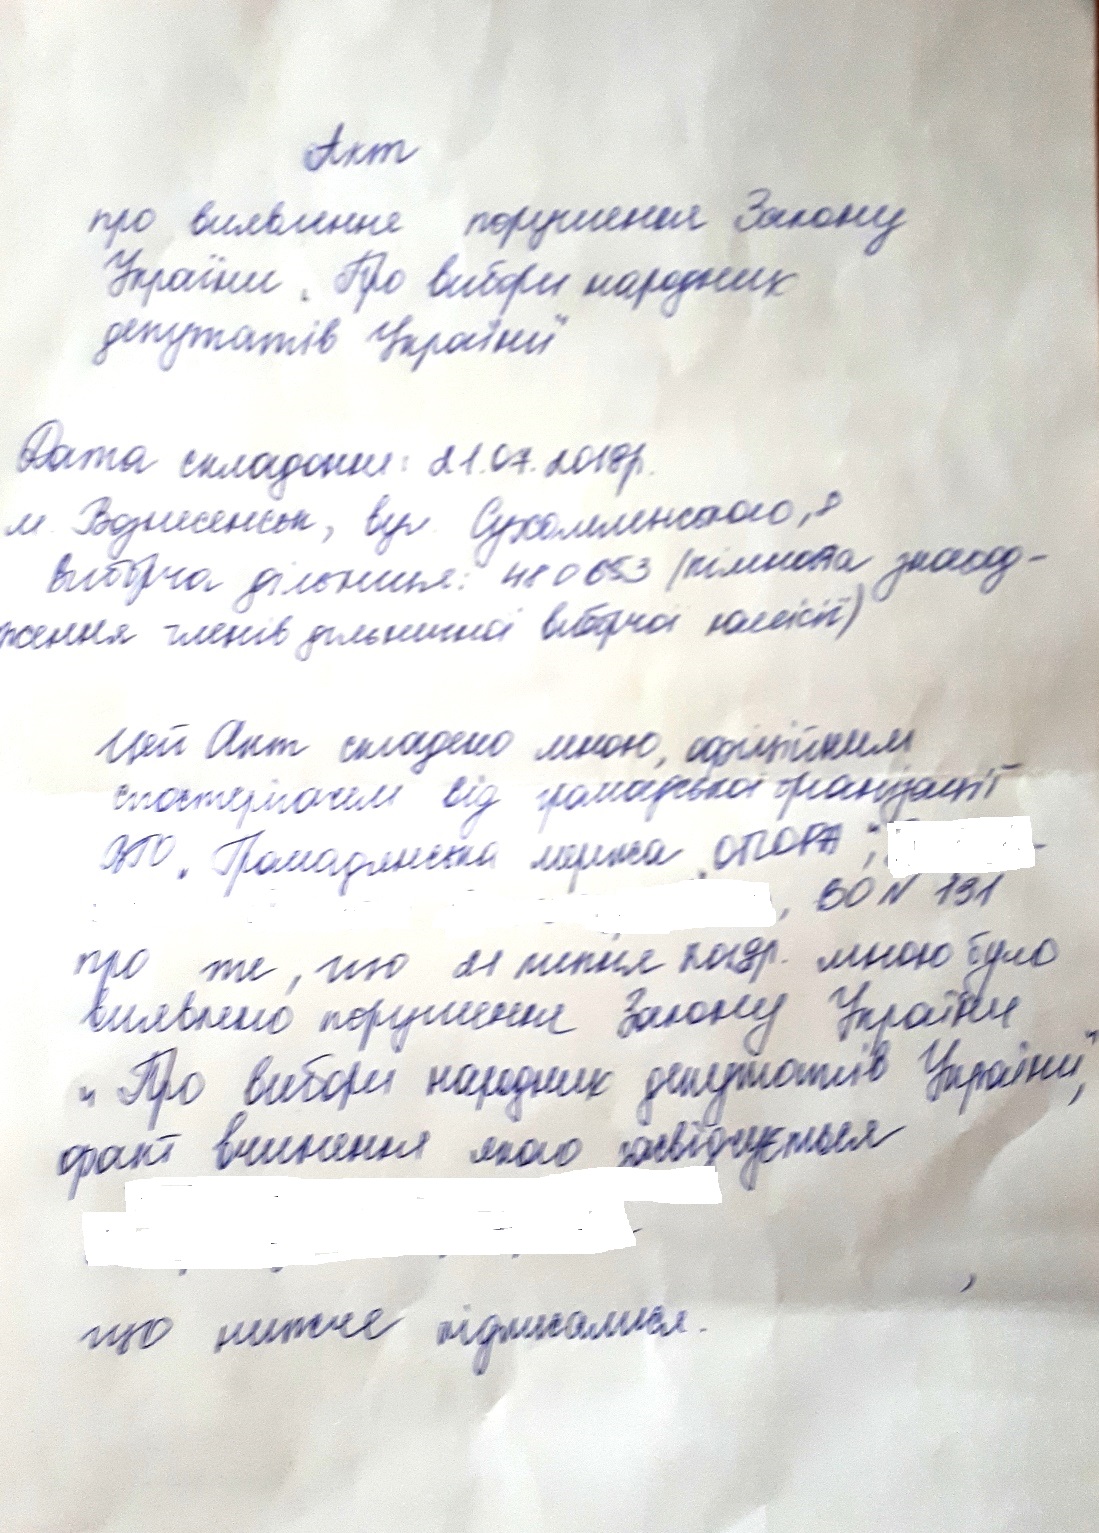 Акт
про виявлення порушення Закону
України „Про вибори народних
депутатів України"
Дата складання: 21.07.2019р.
м. Вознесенськ, вул. Сухомлинського, 8
виборча дільниця: 480653 (кімната знаход-
ження членів дільничної виборчої комісії)
Цей Акт складено мною, офіційним
спостерігачем від громадської організації
ГО „Громадянська мережа „ОПОРА",
, ВО № 131
про те, що 21 липня 2019р. мною було
виявлено порушення Закону України
„Про вибори народних депутатів України",
факт вчинення якого засвідчується
що нижче підписалися.